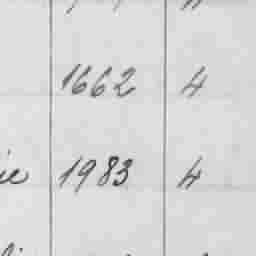 1662 4
ie 1983 4